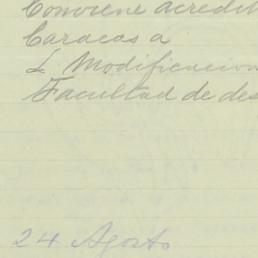 Conviene acredit
Caracas a
L Modificacion
Facultad de des
24 Agosto